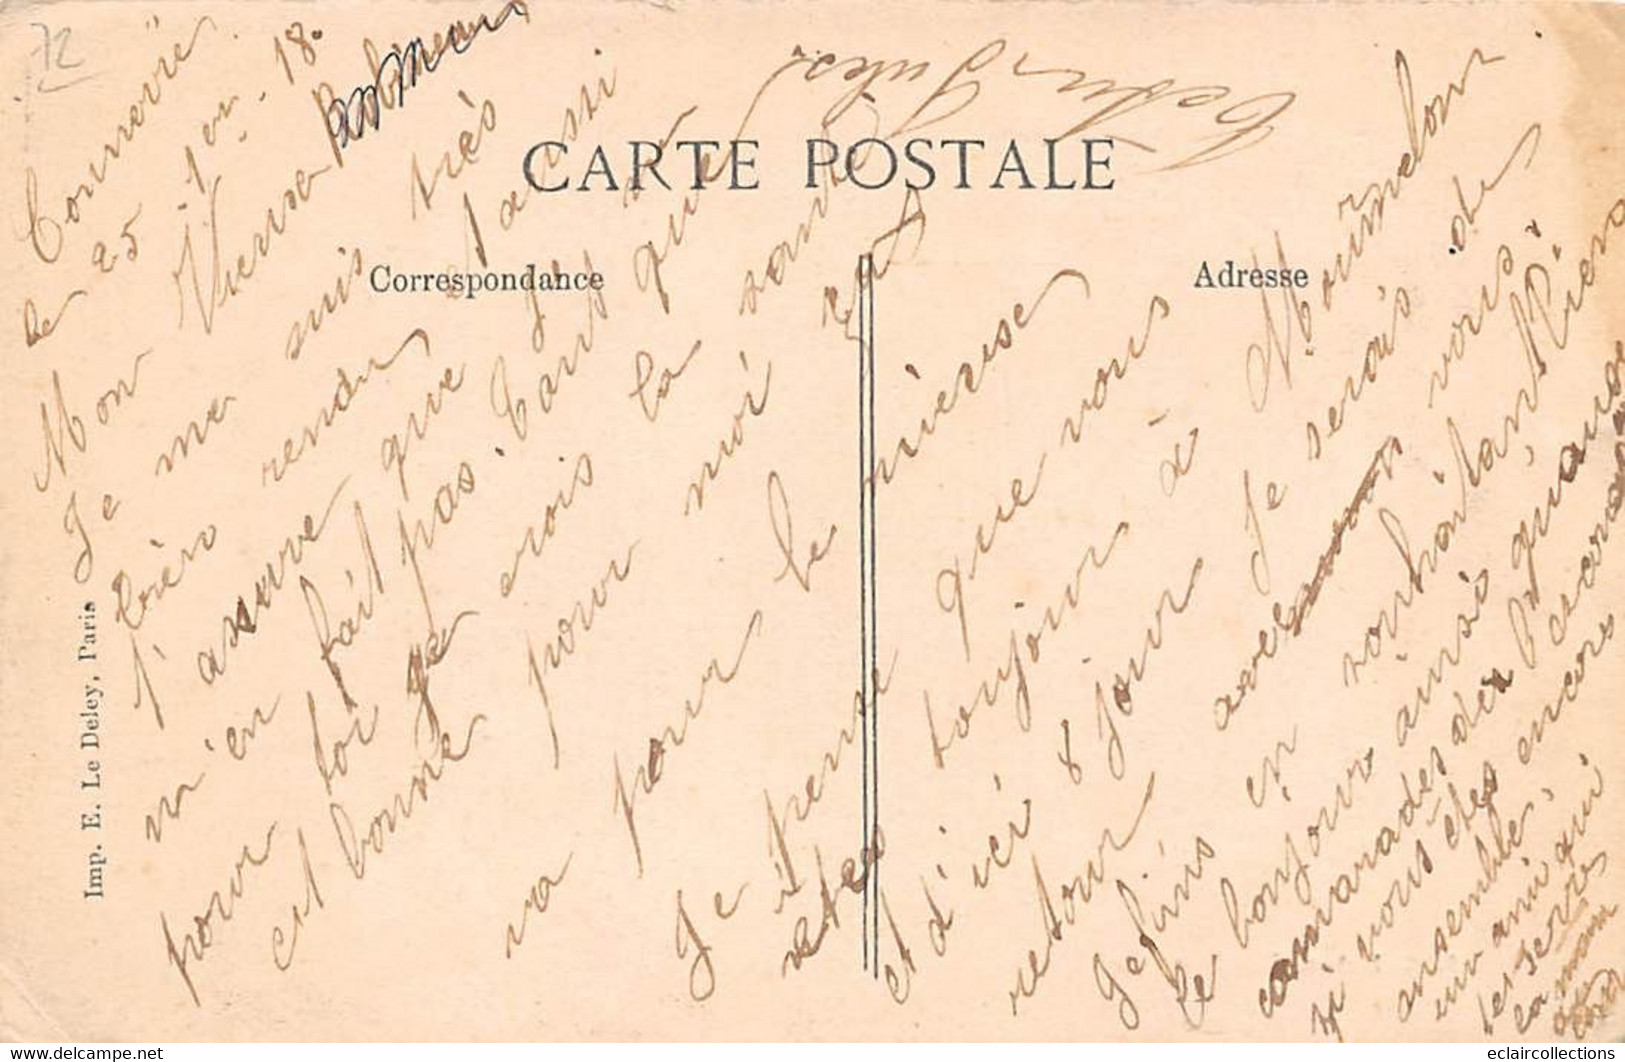 72
CARTE POSTALE
Correspondance
Adresse
Imp. E. Le Deley, Paris
le 25 - 1er - 18.
Mon
Je me suis très
bien rendu et aussi
j'assure que je
m'en fait pas. Tant que
pour toi je crois la santé
est bonne pour moi ça
va pour le mieux
Je pense que vous
êtes toujours à Mourmelon
et d'ici 8 jour je serais de
retour avec vous.
Je finis en souhaitant bien
le bonjour ainsi qu'aux
camarades de l'escouade
si vous êtes encore
ensemble,
un ami qui
te serre
la main
eclaircollections